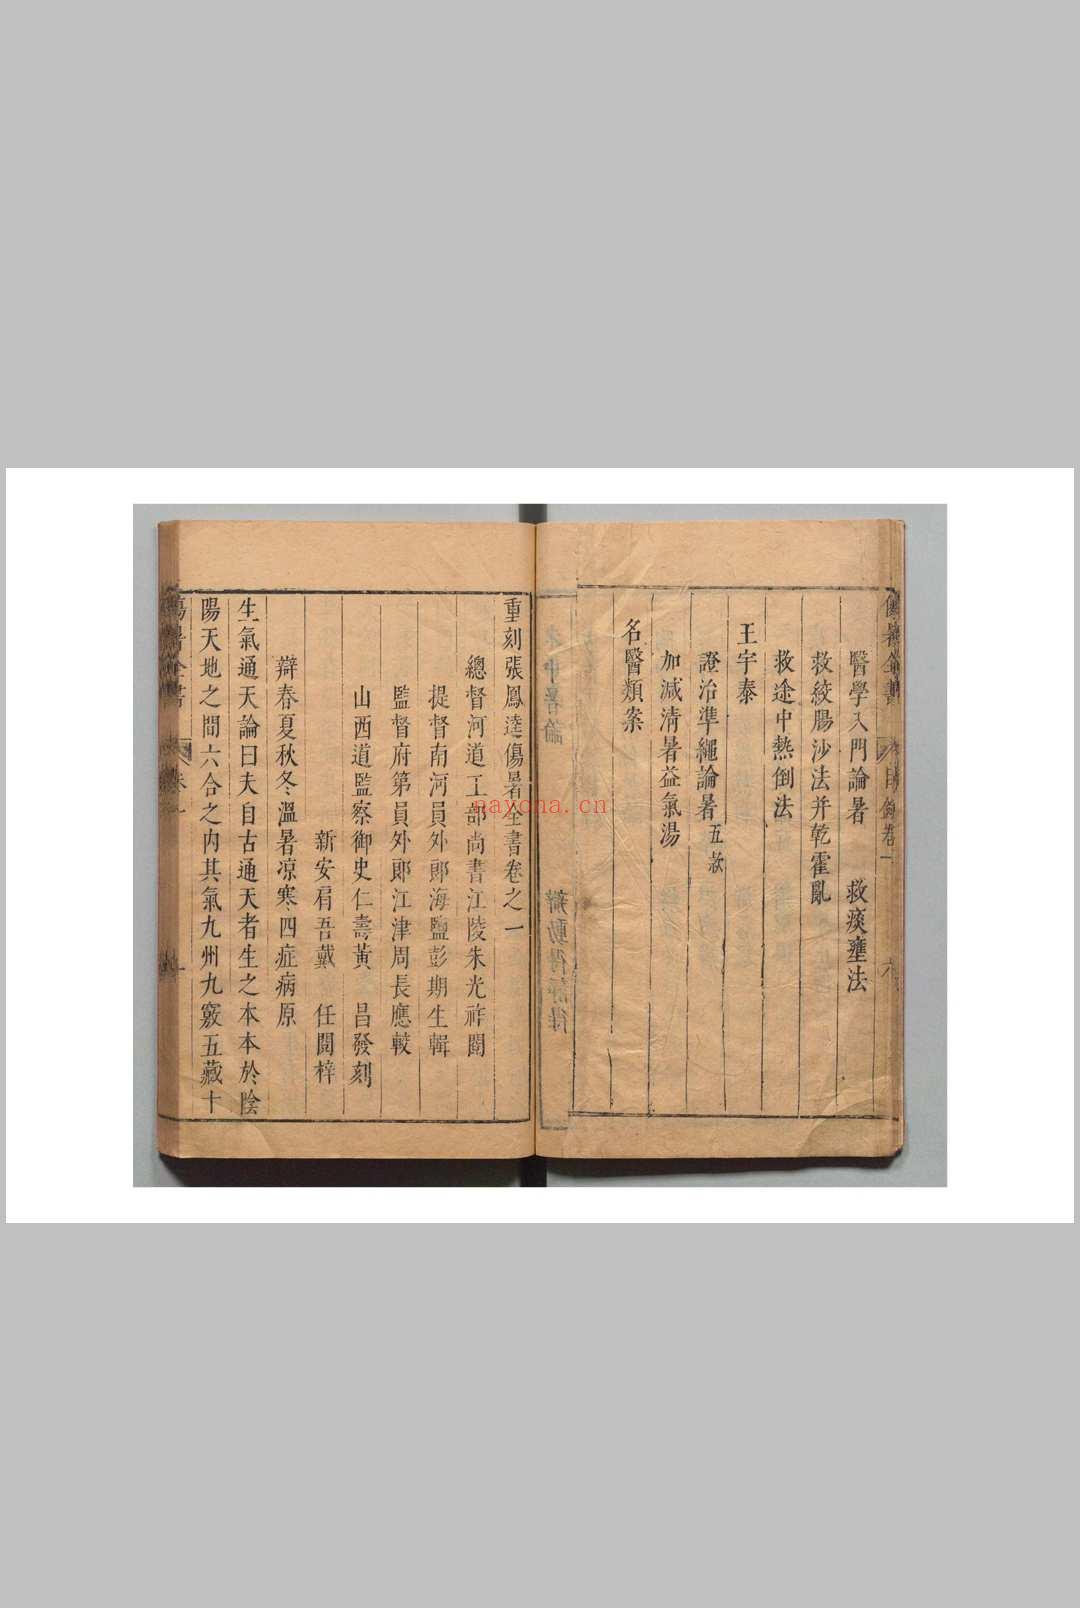 醫學入門論暑　救痰壅法
救絞腸沙法并乾霍亂
救途中熱倒法
王宇泰
證治準繩論暑五款
加减清暑益氣湯
名醫類案
重刻張鳳逵傷暑全書卷之一
總督河道工部尚書江陵朱光祚閱
提督南河員外郎海鹽彭期生輯
監督府第員外郎江津周長應較
山西道監察御史仁壽黃　昌發刻
新安肩吾戴　任閱梓
辯春夏秋冬溫暑凉寒四症病原
生氣通天論曰夫自古通天者生之本本於陰
陽天地之間六合之内其氣九州九竅五藏十
傷暑全書
卷一
一
nayona.cn